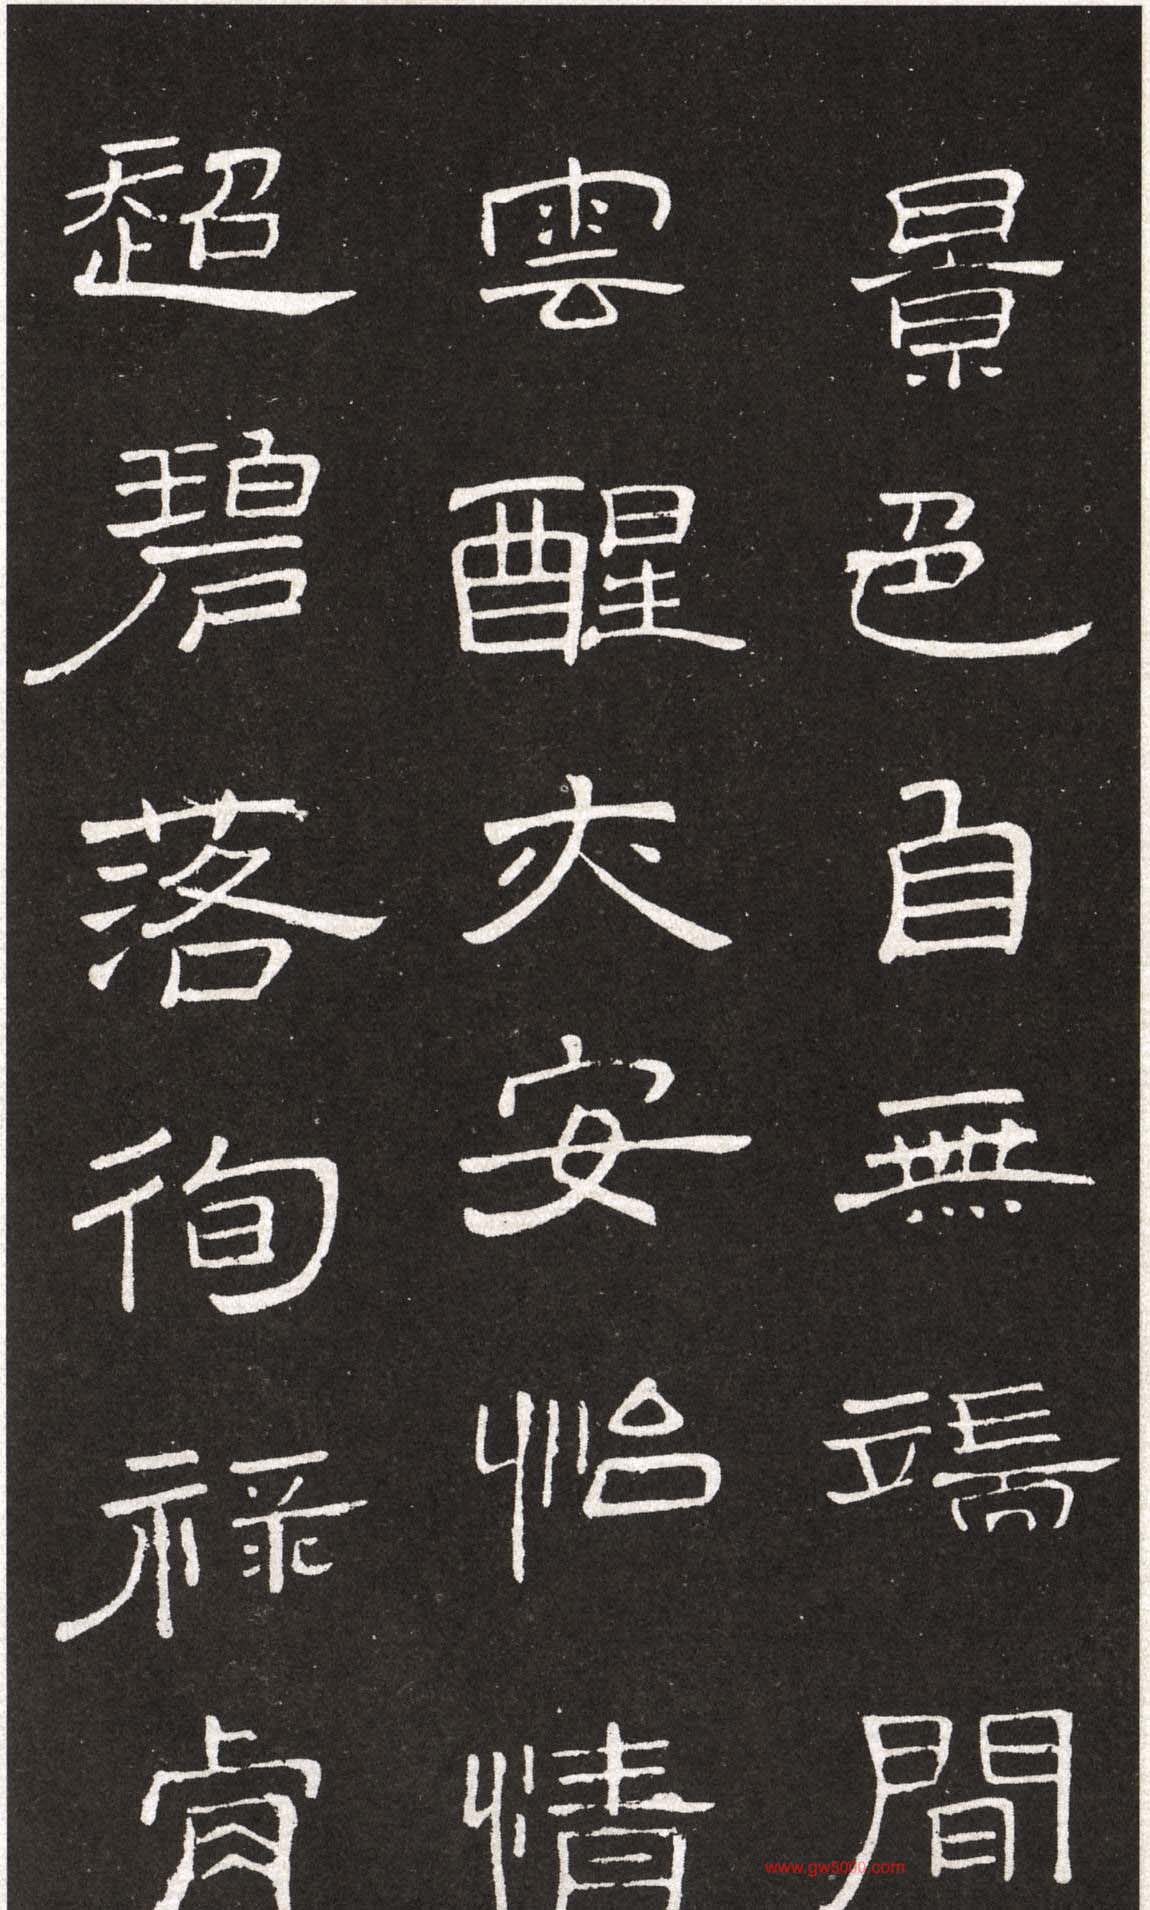 景色自無端間
雲醒亦安怡情
超碧落徇祿肯
www.gw8090.com